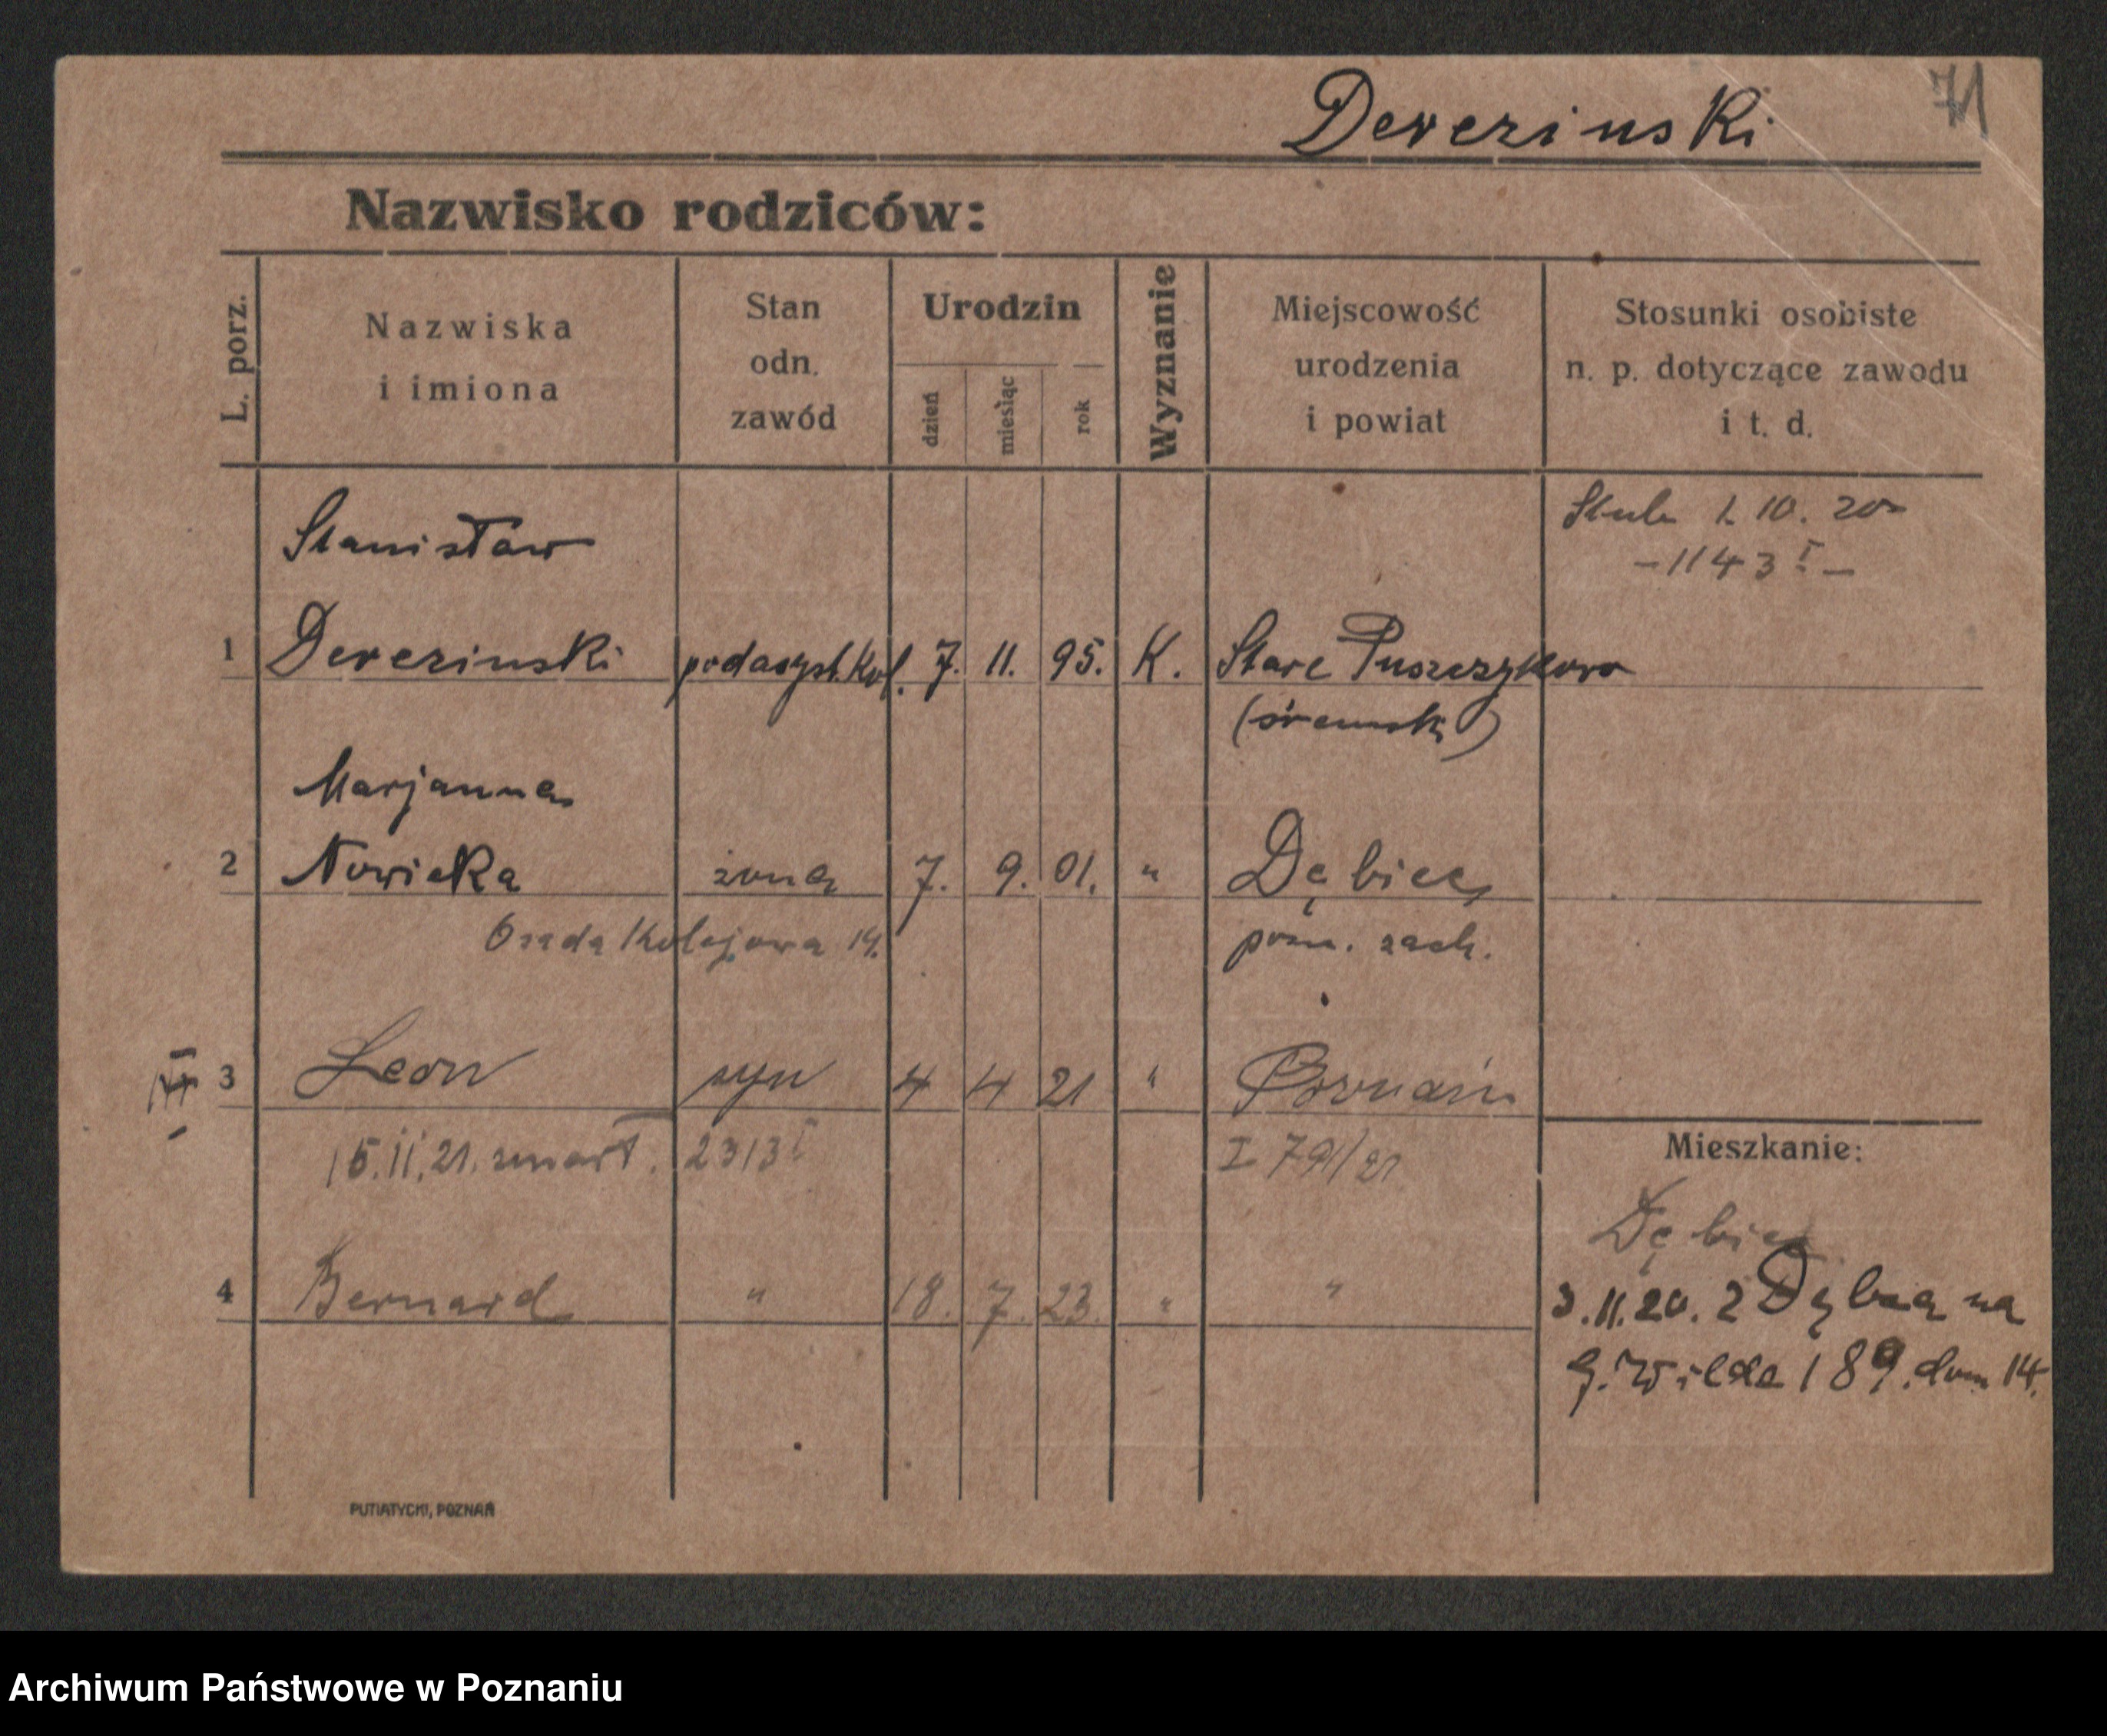 71
Derezinski
Nazwisko rodziców:
L. porz.
Nazwiska
i imiona
Stan
odn.
zawód
Urodzin
dzień
miesiąc
rok
Wyznanie
Miejscowość
urodzenia
i powiat
Stosunki osobiste
n. p. dotyczące zawodu
i t. d.
Ślub 1. 10. 20
-1143 I-
Stanisław
1 Derezinski podasyst. Kol. 7. 11. 95. K. Stare Puszczykowo
(śremski)
Marjanna
2 Nowicka żona 7. 9. 01. " Dębiec,
Osada Kolejowa 14. pozn. zach.
3 Leon syn 4 4 21 " Poznań
15.11.21. zmarł. 2313 I I 791/21
4 Bernard " 18. 7. 23. " "
Mieszkanie:
Dębiec
3.11.20. z Dębca na
G. Wilda 189. dom 14.
PUTIATYCKI, POZNAŃ
Archiwum Państwowe w Poznaniu